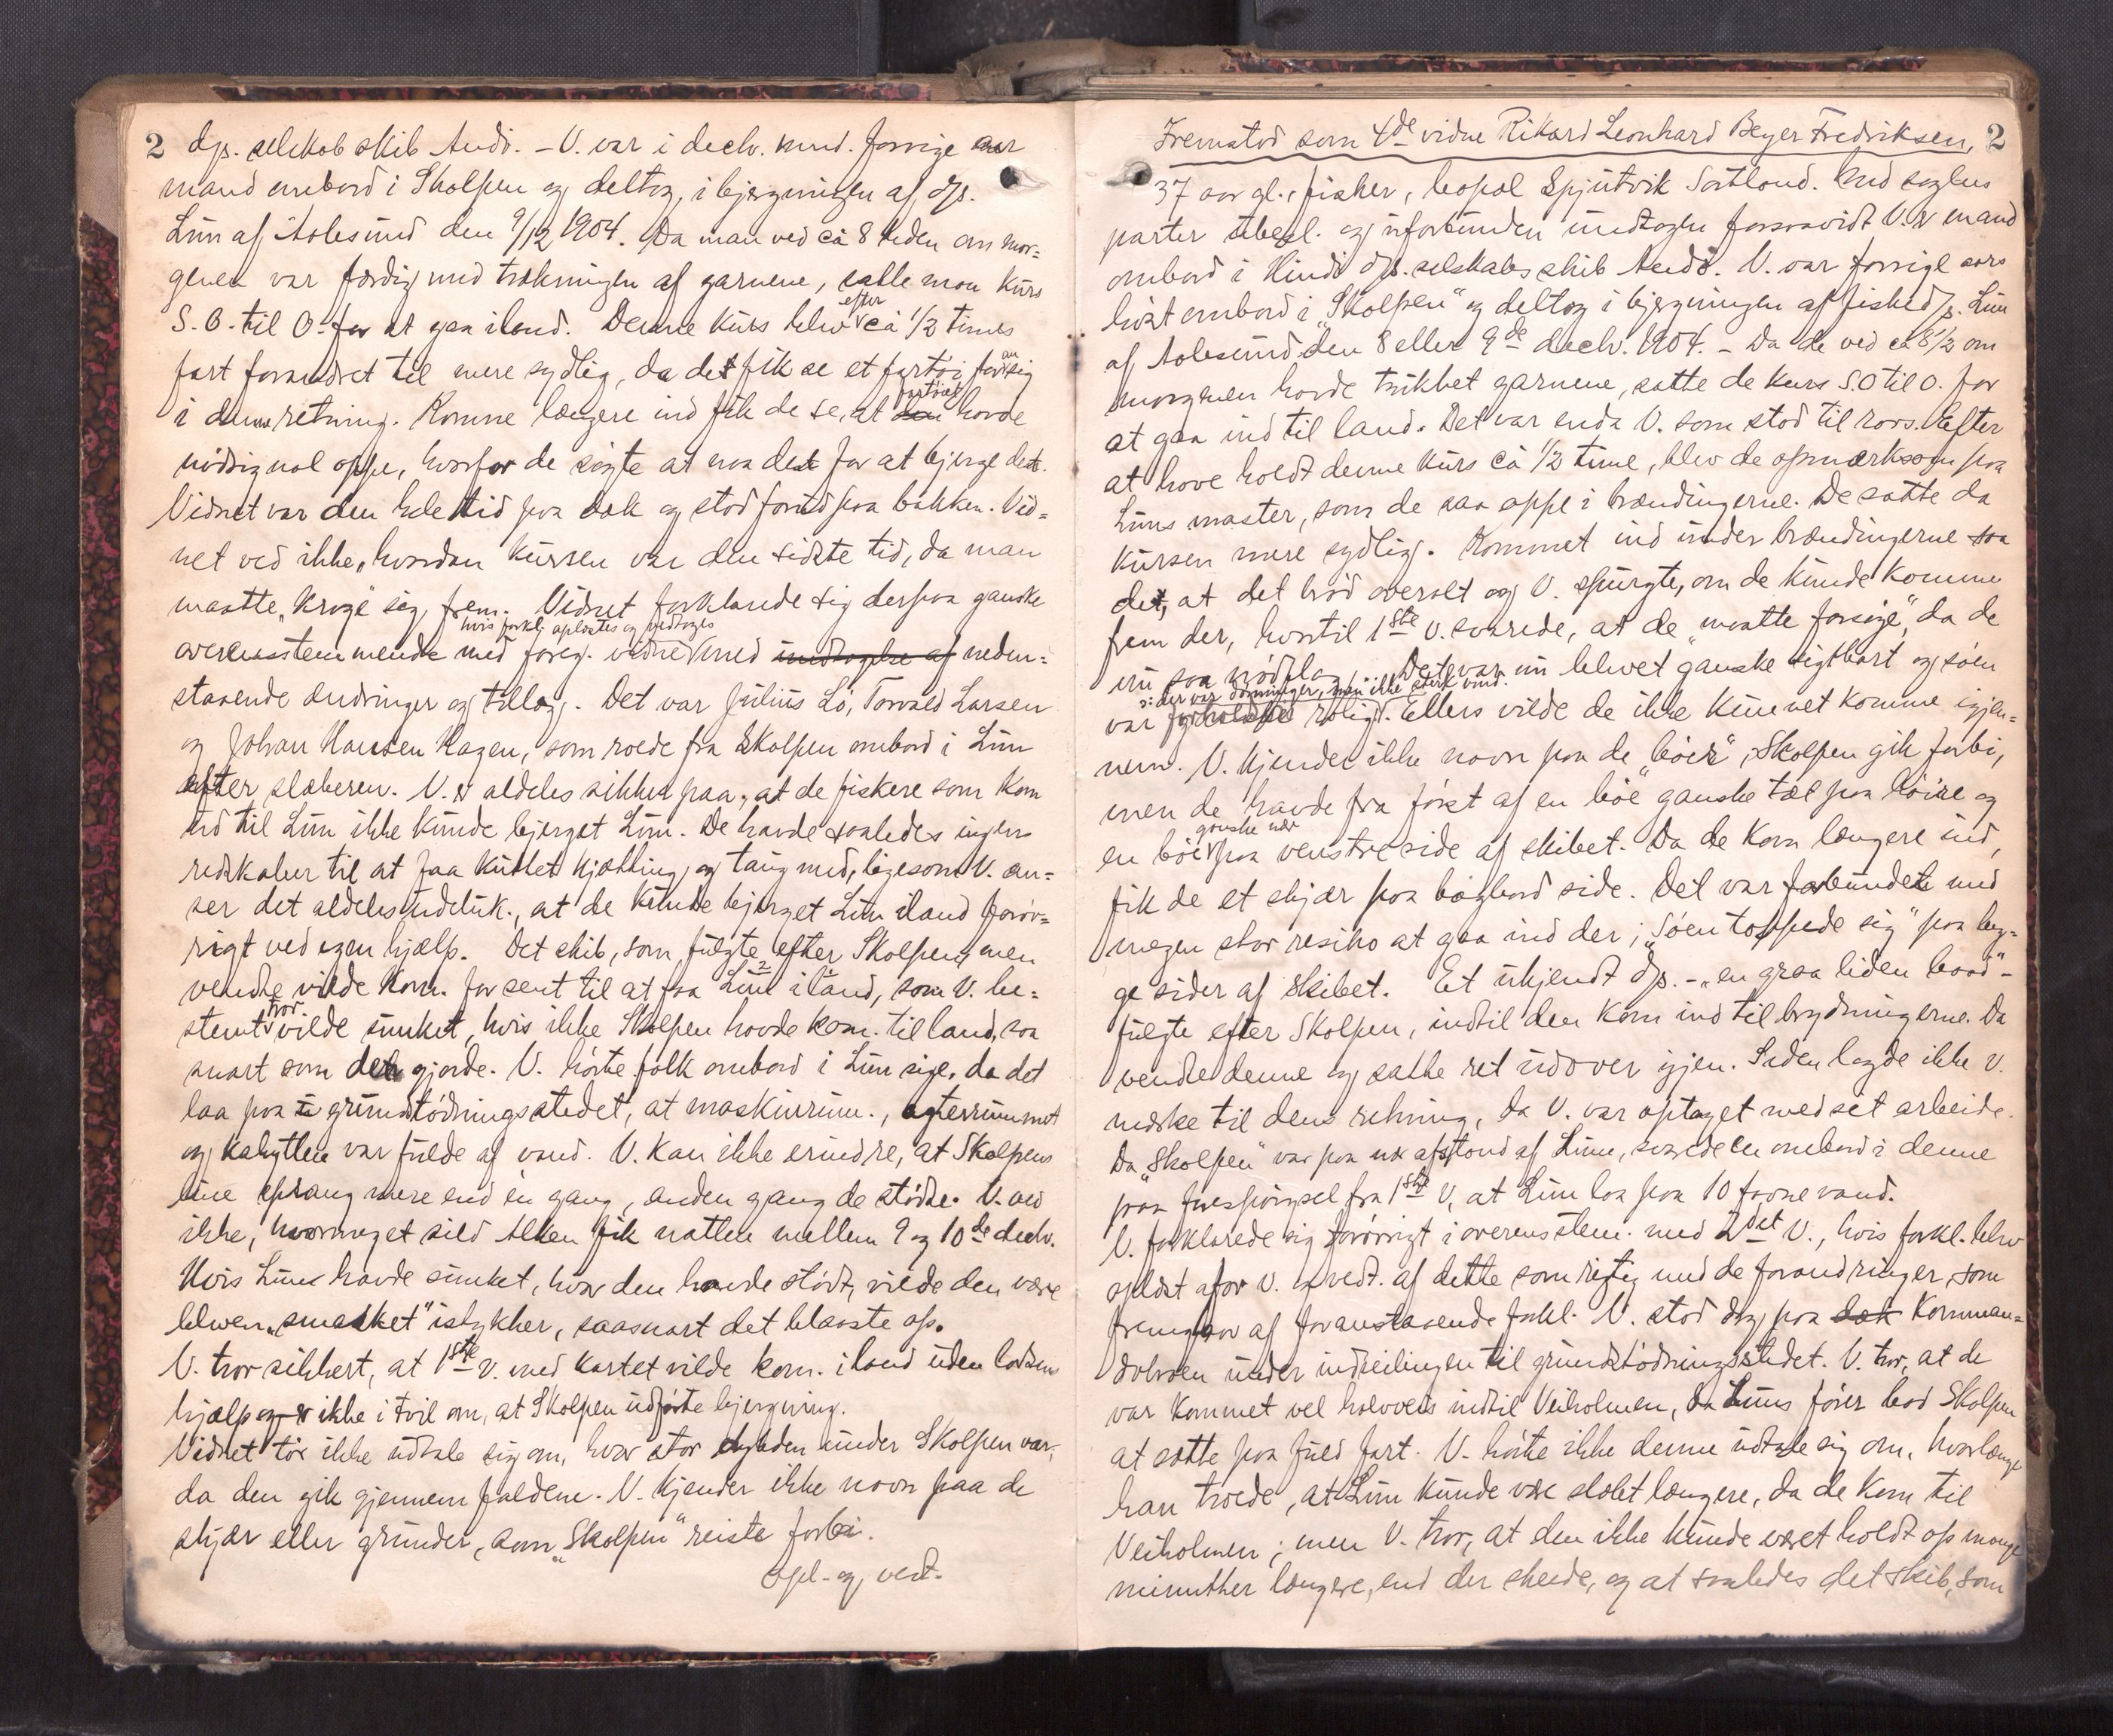 2 djs. selskab skib Andö. – V. var i decbr. mnd. forrige aar
mand ombord i Skolpen og deltog i bjergningen af d/s.
Linn af Aalesund den 9/12 1904. Da man ved ca 8 tiden om mor=
genen var færdig med trækningen af garnene, satte man kurs
S.O. til O. for at gaa iland. Denne kurs blev efter ca 1/2 times
fart forandret til mere sydlig, da det fik se et fartöi foran sig
i denne retning. Komne længere ind fik de se, at den fartöiet havde
nödsignal oppe, hvorfor de sögte at naa dette for at bjerge det.
Vidnet var den hele tid paa dæk og stod forud paa bakken. Vid=
net ved ikke, hvordan kursen var den sidste tid, da man
maatte „kroge" sig frem. Vidnet forklarede sig derpaa ganske
overensstemmende med foreg. vidne hvis forkl. oplæstes og vedtoges med undtagelse af neden=
staaende ændringer og tillæg. Det var Julius Lö, Torvald Larsen
og Johan Hansen Hagen, som roede fra Skolpen ombord i Linn
efter slæberen. V. er aldeles sikker paa, at de fiskere som kom
ud til Linn ikke kunde bjerget Linn. De havde saaledes ingen
redskaber til at faa kuttet kjætting og taug med, ligesom V. an=
ser det aldeles udeluk., at de kunde bjerget Linn iland forøv=
rigt ved egen hjælp. Det skib, som fulgte efter Skolpen, men
vendte vilde kom. for sent til at faa Linn iland, som V. be=
stemt tror vilde sunket, hvis ikke Skolpen havde kom. til land, saa
snart som det gjorde. V. hörte folk ombord i Linn sige, da det
laa paa grundstödningsstedet, at maskinrum., agterrummet
og kahytten var fulde af vand. V. kan ikke erindre, at Skolpens
line sprang mere end én gang, anden gang de stödte. V. ved
ikke, hvormeget sild Alken fik natten mellem 9 og 10de decbr.
Hvis Linn havde sunket, hvor den havde stödt, vilde den være
bleven „smasket" istykker, saasnart det blæste op.
V. tror sikkert, at 1ste V. med kartet vilde kom. iland uden lodsens
hjælp og er ikke i tvil om, at Skolpen udförte bjergning.
Vidnet tör ikke udtale sig om, hvor stor dybden under Skolpen var,
da den gik gjennem faldene. V. kjender ikke navn paa de
skjær eller grunder, som „Skolpen" reiste forbi.
Opl. og vedt.
Fremstod som 4de vidne Rikard Leonhard Beyer Fredriksen, 2
37 aar gl., fisker, bopæl Spjutvik Sortland. Med sagens
parter ubesl. og uforbunden undtagen forsaavidt V. er mand
ombord i Hindö djs. selskabs skib Andö. V. var forrige aars
höst ombord i „Skolpen" og deltog i bjergningen af fisked/s. Linn
af Aalesund den 8 eller 9de decbr. 1904. – Da de ved ca 8 1/2 om
morgenen havde trukket garnene, satte de kurs S.O til O. for
at gaa ind til land. Det var enda V. som stod til rors. Efter
at have holdt denne kurs ca 1/2 time, blev de opmærksom paa
Linns master, som de saa oppe i brændingerne. De satte da
kursen mere sydlig. Kommet ind under brændingerne saa
det, at det bröd overalt og V. spurgte, om de kunde komme
frem der, hvortil 1ste V. svarede, at de „maatte forsöge", da de
nu saa nödflag. Dette var nu blevet ganske sigtbart og söen
var forholdsvis rolig ɔ: der var dönninger, men ikke sterk vind. Ellers vilde de ikke kunnet komme igjen=
nem. V. kjender ikke navn paa de „böer", Skolpen gik forbi,
men de havde fra först af en böe ganske tæt paa höire og
en böe ganske nær paa venstre side af skibet. Da de kom længere ind,
fik de et skjær paa bagbord side. Det var forbundet med
megen stor resiko at gaa ind der; „Söen toppede sig" paa beg=
ge sider af skibet. Et ukjendt d/s. – „en graa liden baad" –
fulgte efter Skolpen, indtil den kom ind til brydningerne. Da
vendte denne og satte ret udover igjen. Siden lagde ikke V.
mærke til dens retning, da V. var optaget med sit arbeide.
Da „Skolpen" var paa nær afstand af Linn, svarede en ombord i denne
paa forespörgsel fra 1ste V, at Linn laa paa 10 favne vand.
V. forklarede sig forövrigt i overensstem. med 2det V., hvis forkl. blev
oplæst for V. og vedt. af dette som rigtig med de forandringer, som
fremgaar af foranstaaende forkl. V. stod dog paa dæk Komman=
dobroen under indseilingen til grundstödningsstedet. V. tror, at de
var kommet vel halvveis indtil Veiholmen, da Linns förer bad Skolpen
at sætte paa fuld fart. V. hörte ikke denne udtale sig om, hvorlænge
han troede, at Linn kunde være slæbt længere, da de kom til
Veiholmen; men V. tror, at den ikke kunde været holdt op mange
minutter længere, end der skeede, og at saaledes det skib, som